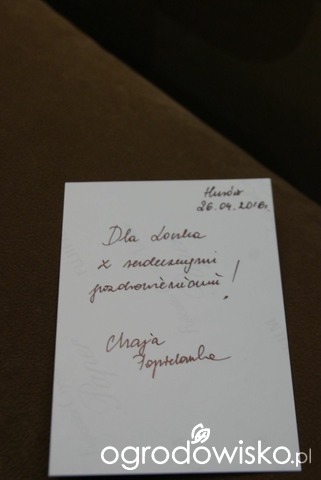 26.04.2010r.
Dla
z serdecznymi
pozdrowieniami!
Maja
Popielarska
ogrodowisko.pl